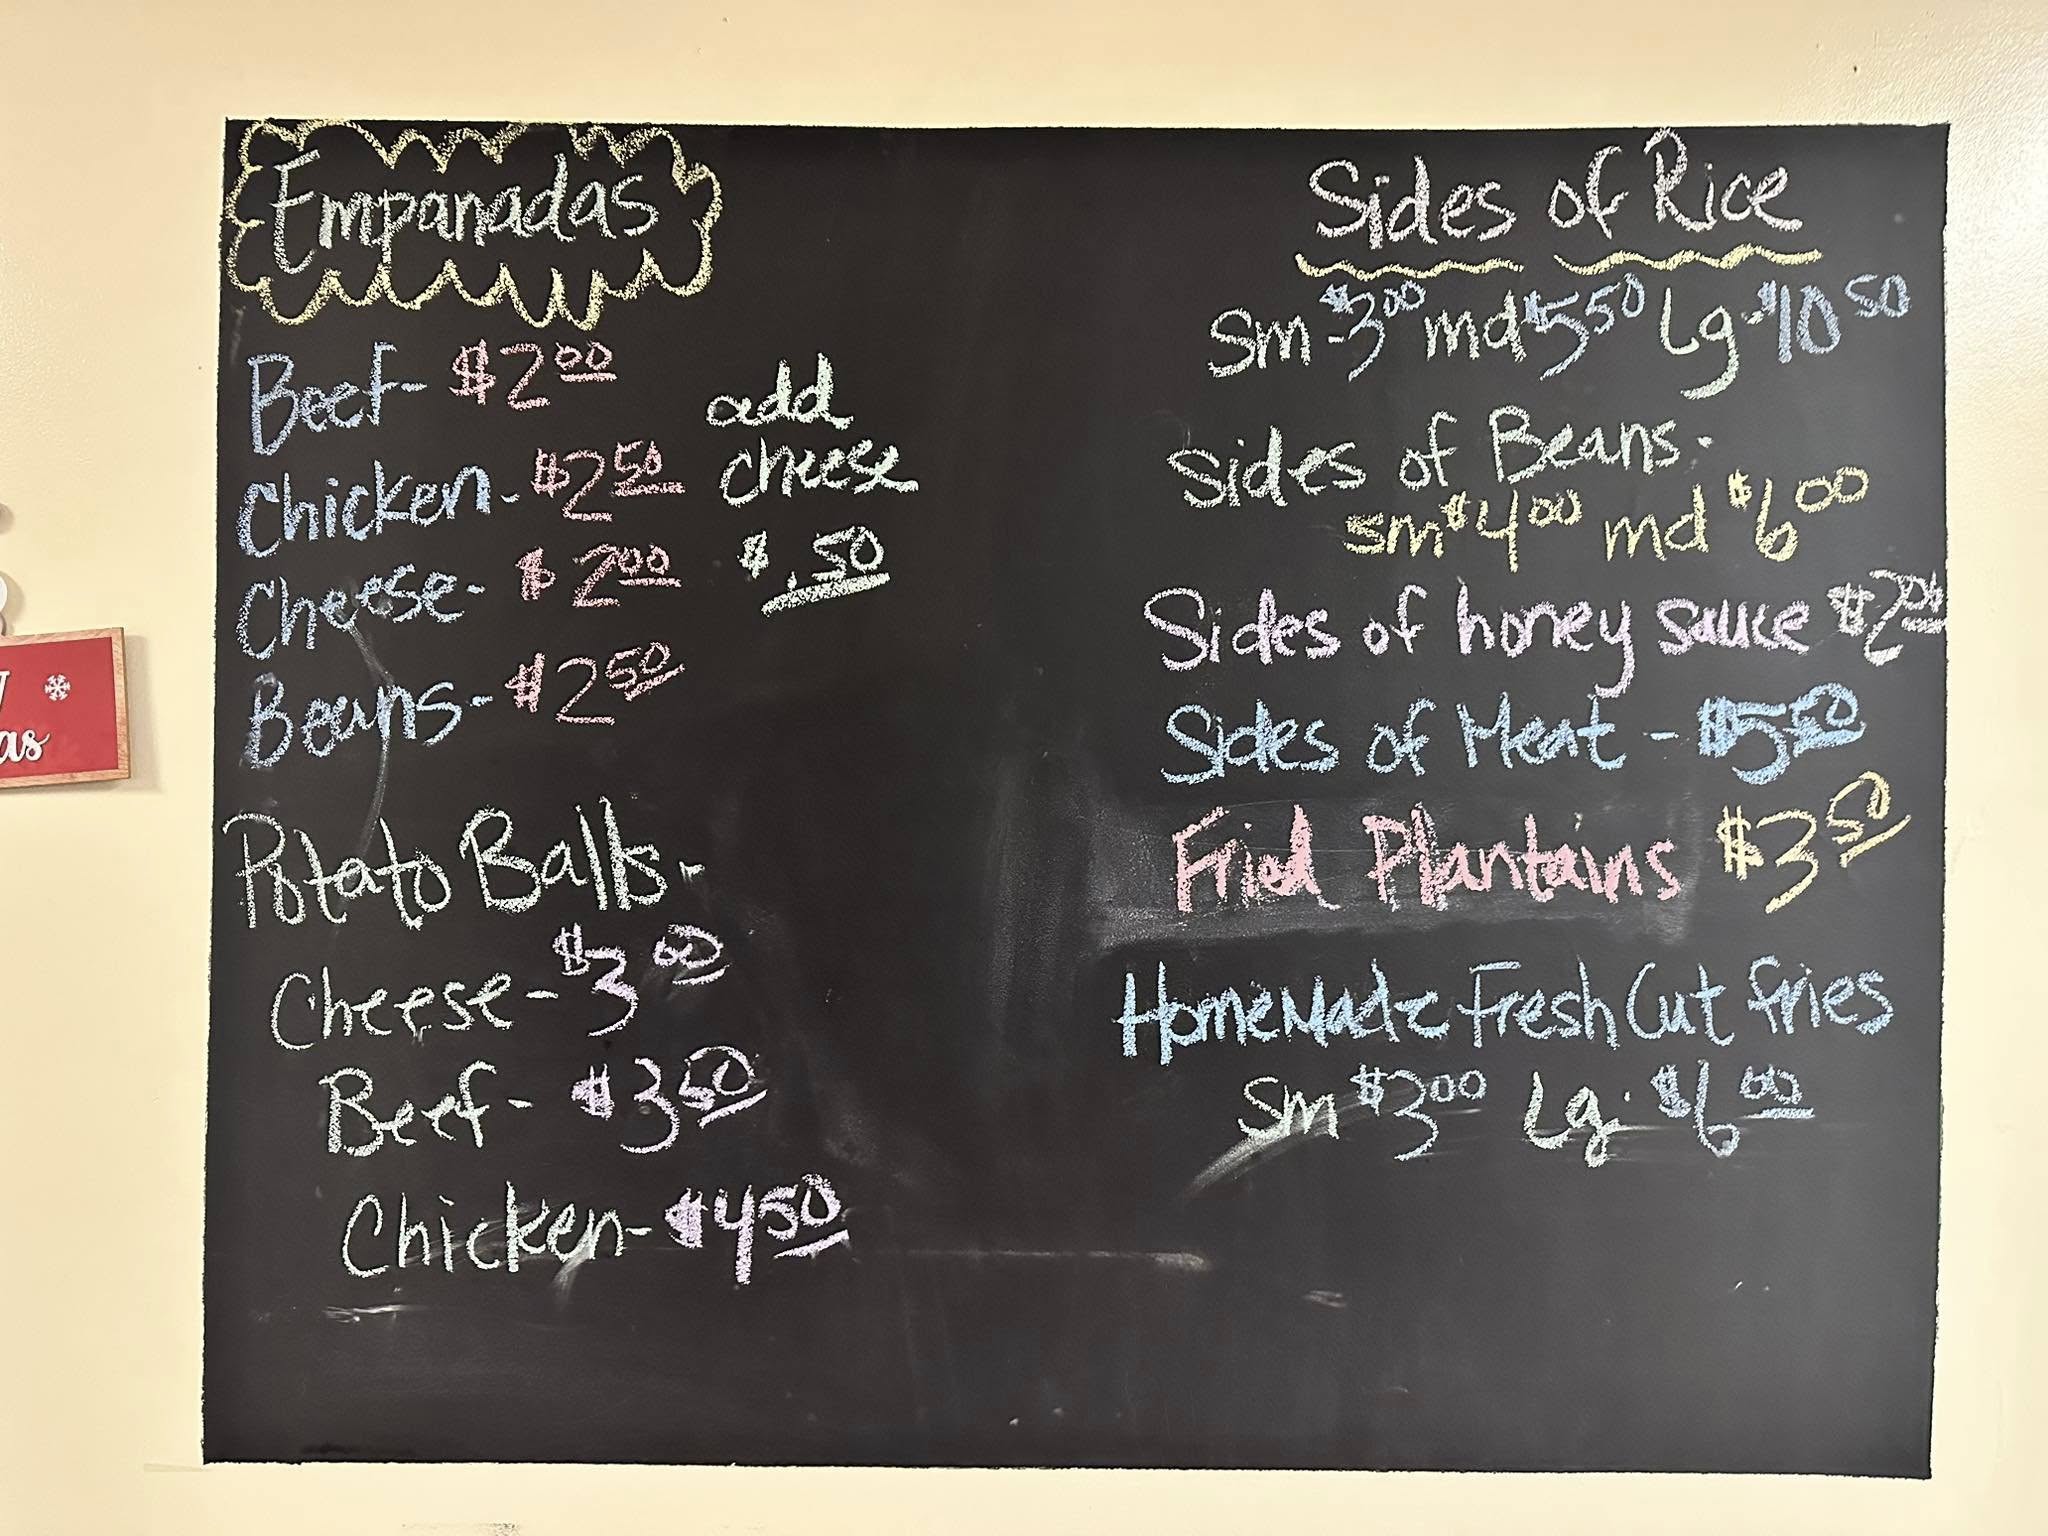 Empanadas
Beef- $2.00
Chicken- $2.50
Cheese- $2.00
Beans- $2.50
add
cheese
$.50
Potato Balls-
Cheese- $3.00
Beef- $3.50
Chicken- $4.50
Sides of Rice
Sm-$3.00 md $5.50 Lg-$10.50
Sides of Beans-
sm $4.00 md $6.00
Sides of honey sauce $2.00
Sides of Meat - $5.50
Fried Plantains $3.50
HomeMade Fresh Cut fries
Sm $3.00 Lg. $6.00
as